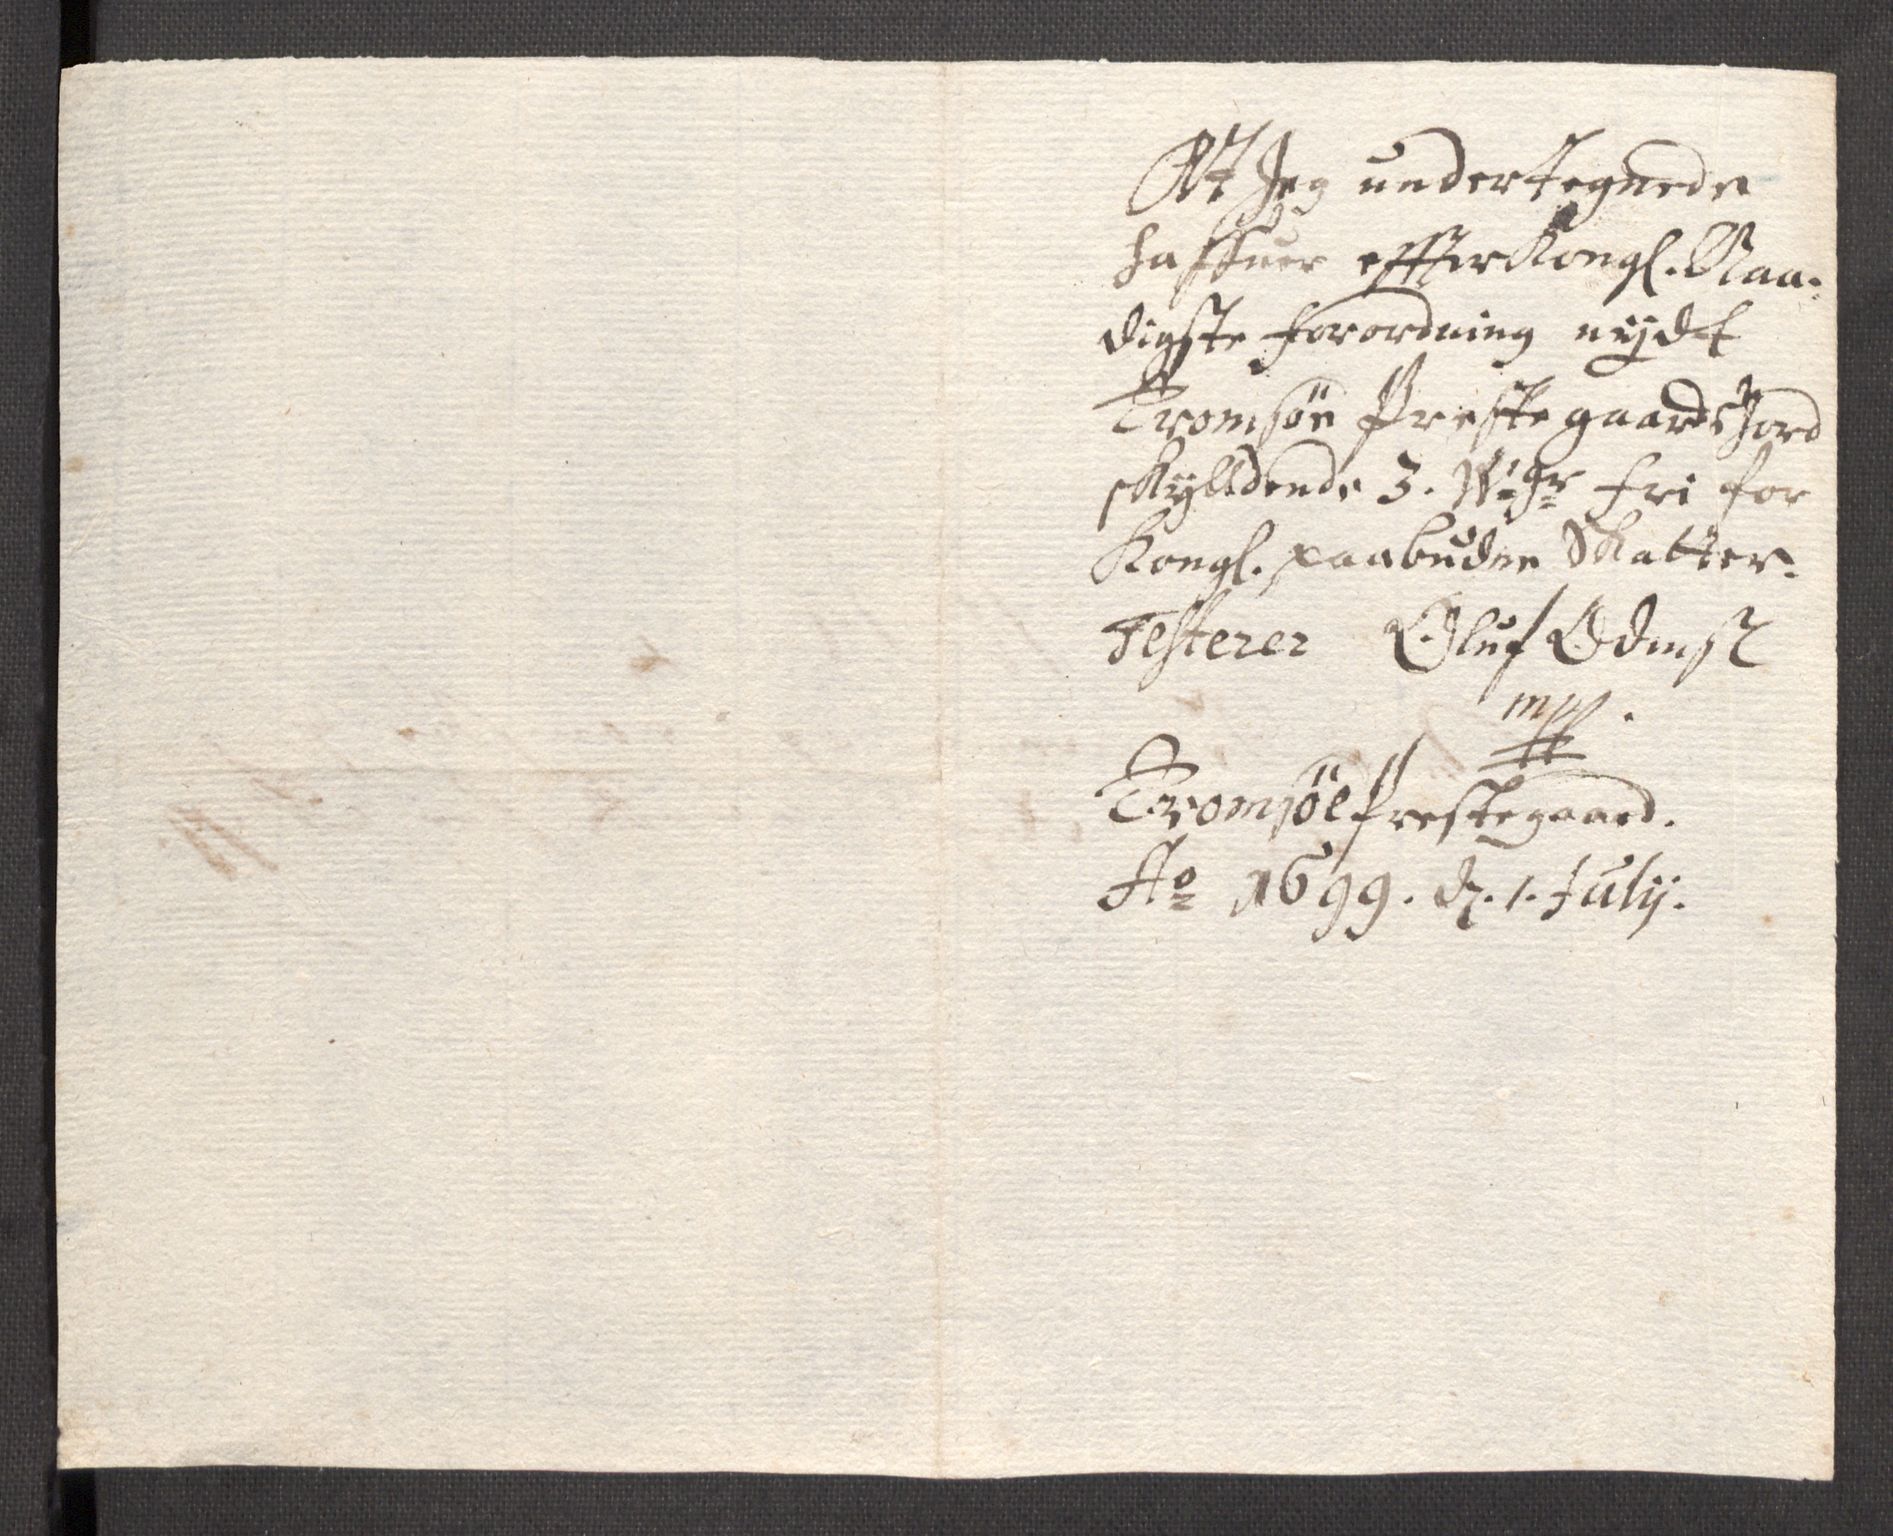 At Jeg undertegnede
haffuer effter Kongl. Naa-
digste forordning nijdt
Tromsöe Prestegaards Jord
skylldende 3. W: fri for
Kongl. paabudne Skatter.
Testerer Oluf Odensß
mpp.
Tromsöe Prestegaard.
Ao 1699. d. 1. Julij.